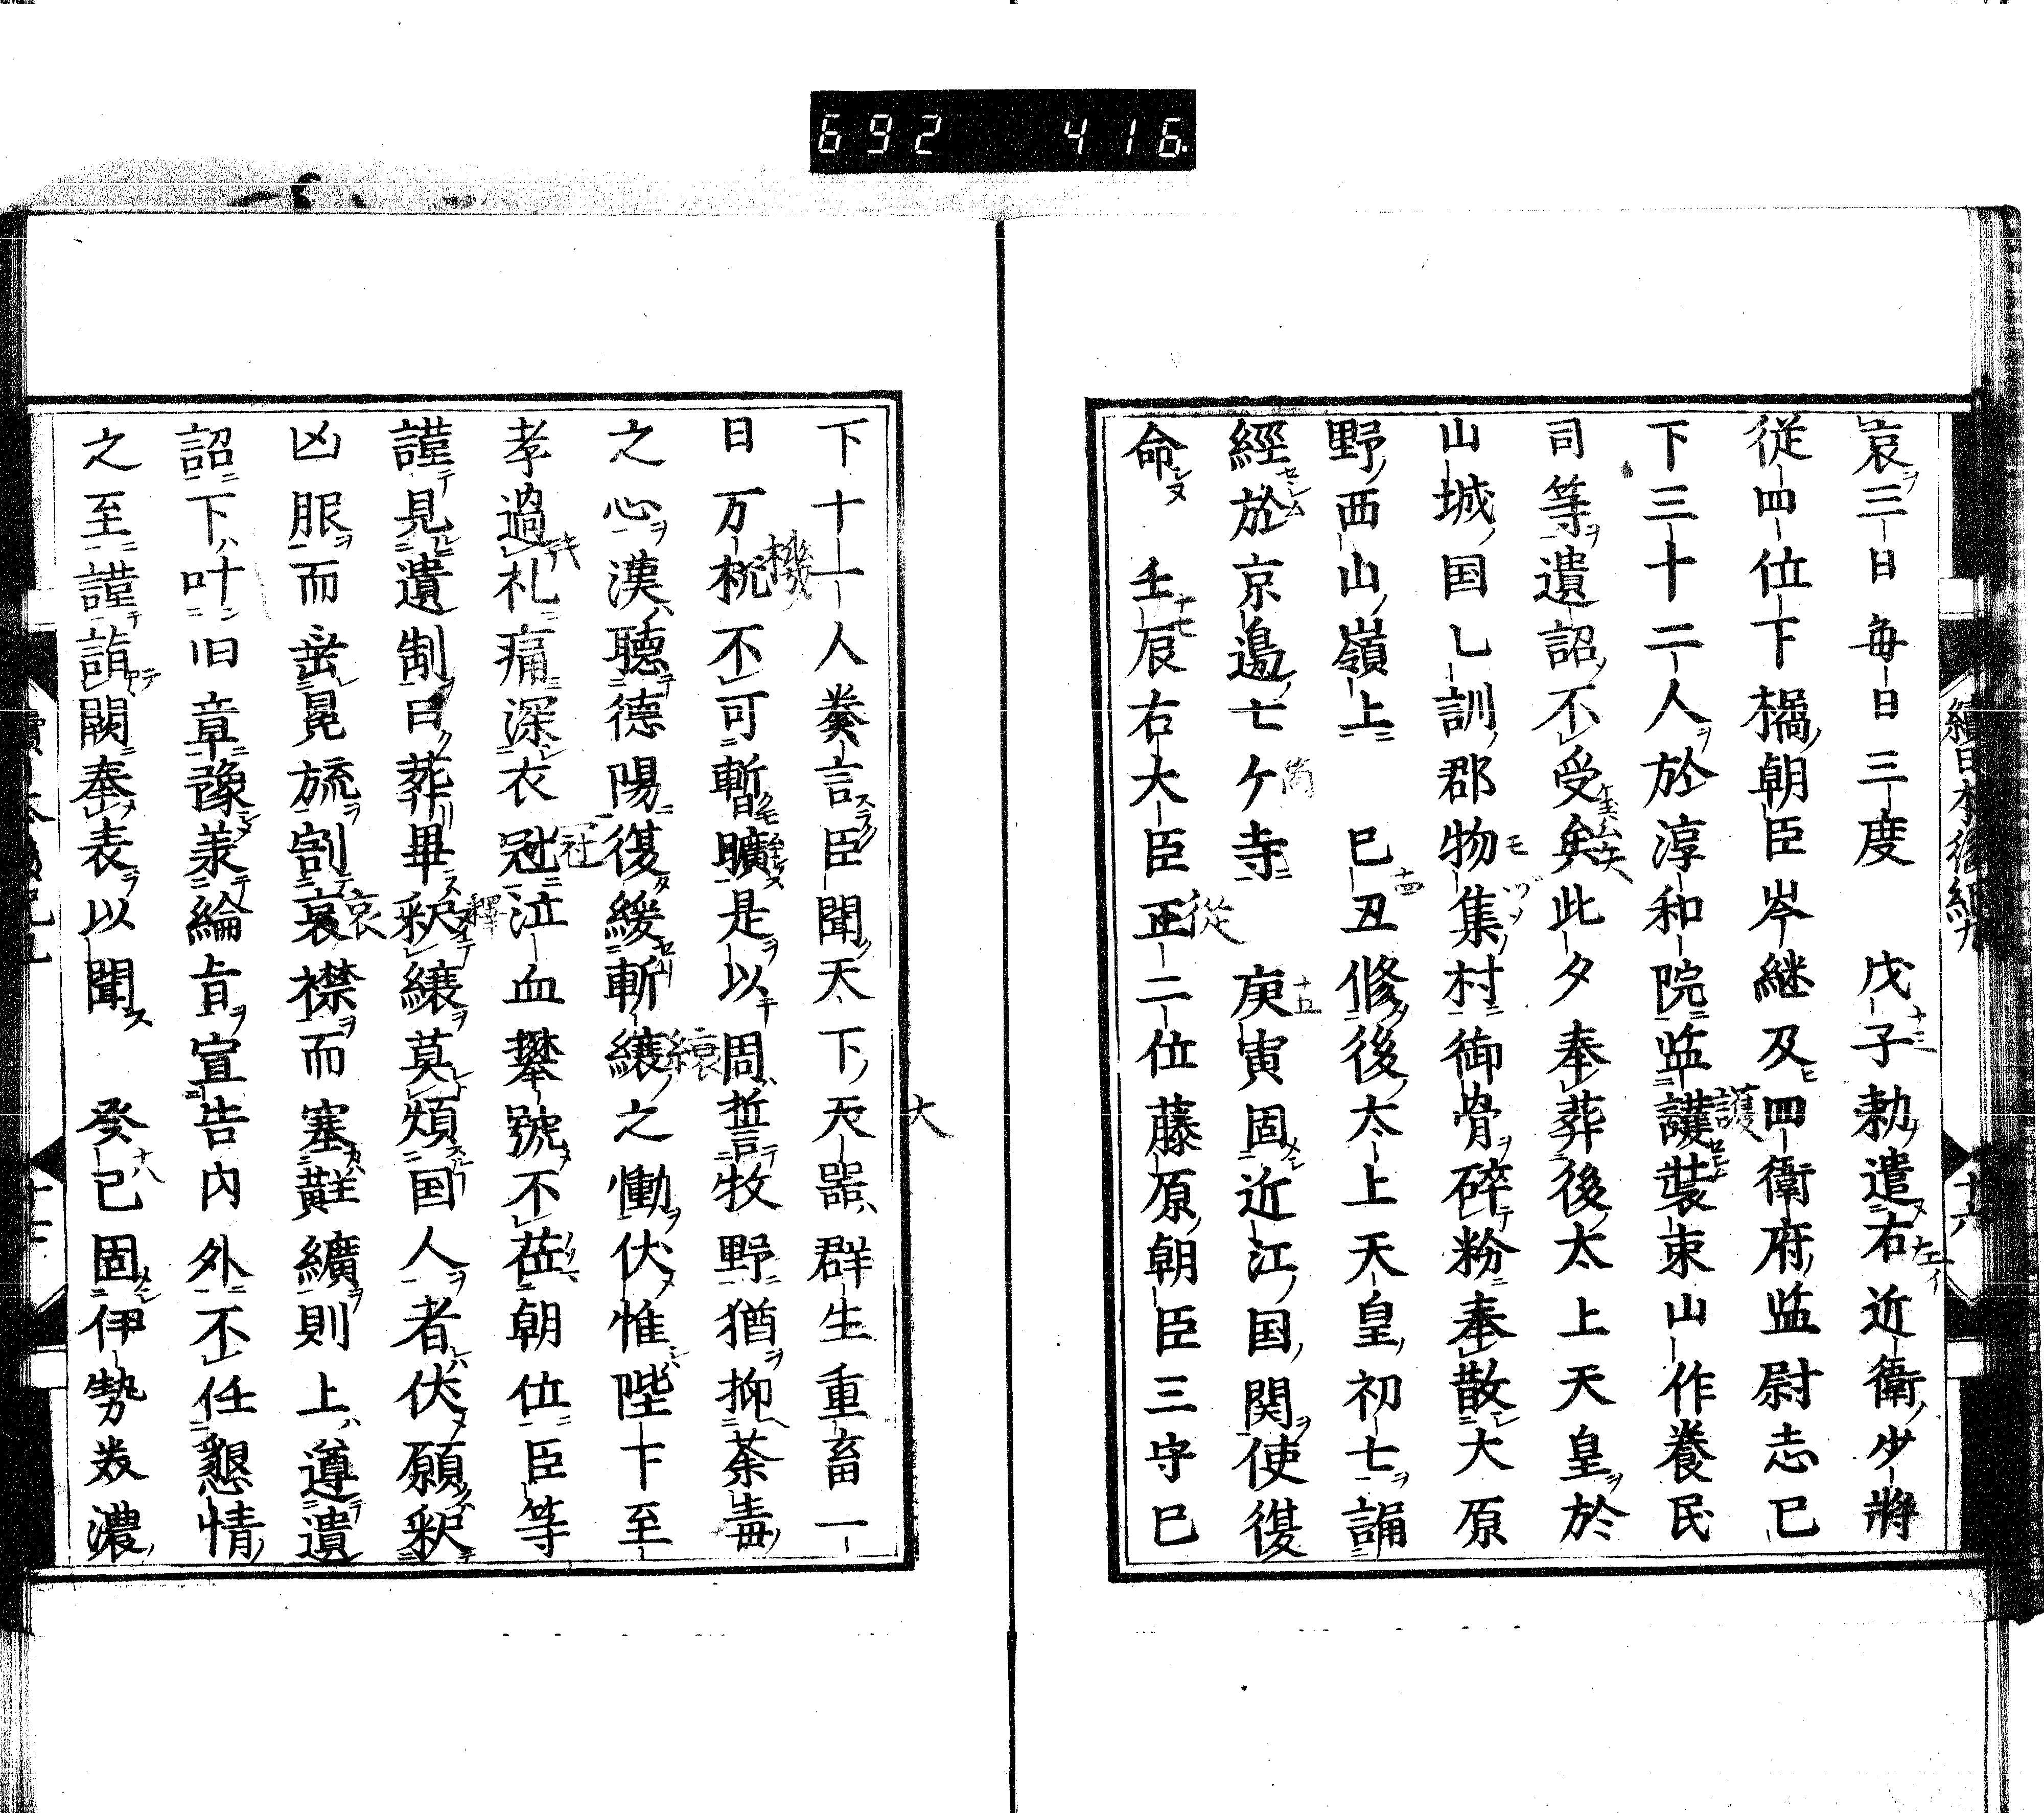 692 416
哀三日毎日三度 戊子勅遣右近衛少將
従四位下橘朝臣岑継及四衛府監尉志已
下三十二人於淳和院監護装束山作養民
司等遺詔不受矣此夕奉葬後太上天皇於
山城国乙訓郡物集村御骨碎粉奉散大原
野西山嶺上 己丑修後太上天皇初七誦
經於京邊七ケ寺 庚寅固近江国関使復
命 壬辰右大臣正二位藤原朝臣三守已
下十一人奏言臣聞天下大器群生重畜一
日万機不可暫曠是以周誓牧野猶抑荼毒
之心漢聴德陽復緩斬縗之慟伏惟陛下至
孝過礼痛深衣冠泣血攀號不莅朝位臣等
謹見遺制曰葬畢釈縗莫煩国人者伏願釈
凶服而垂冕旒割哀襟而塞黈纊則上遵遺
詔下叶旧章豫羕綸旨宣告內外不任懇情
之至謹詣闕奉表以聞 癸巳固伊勢美濃